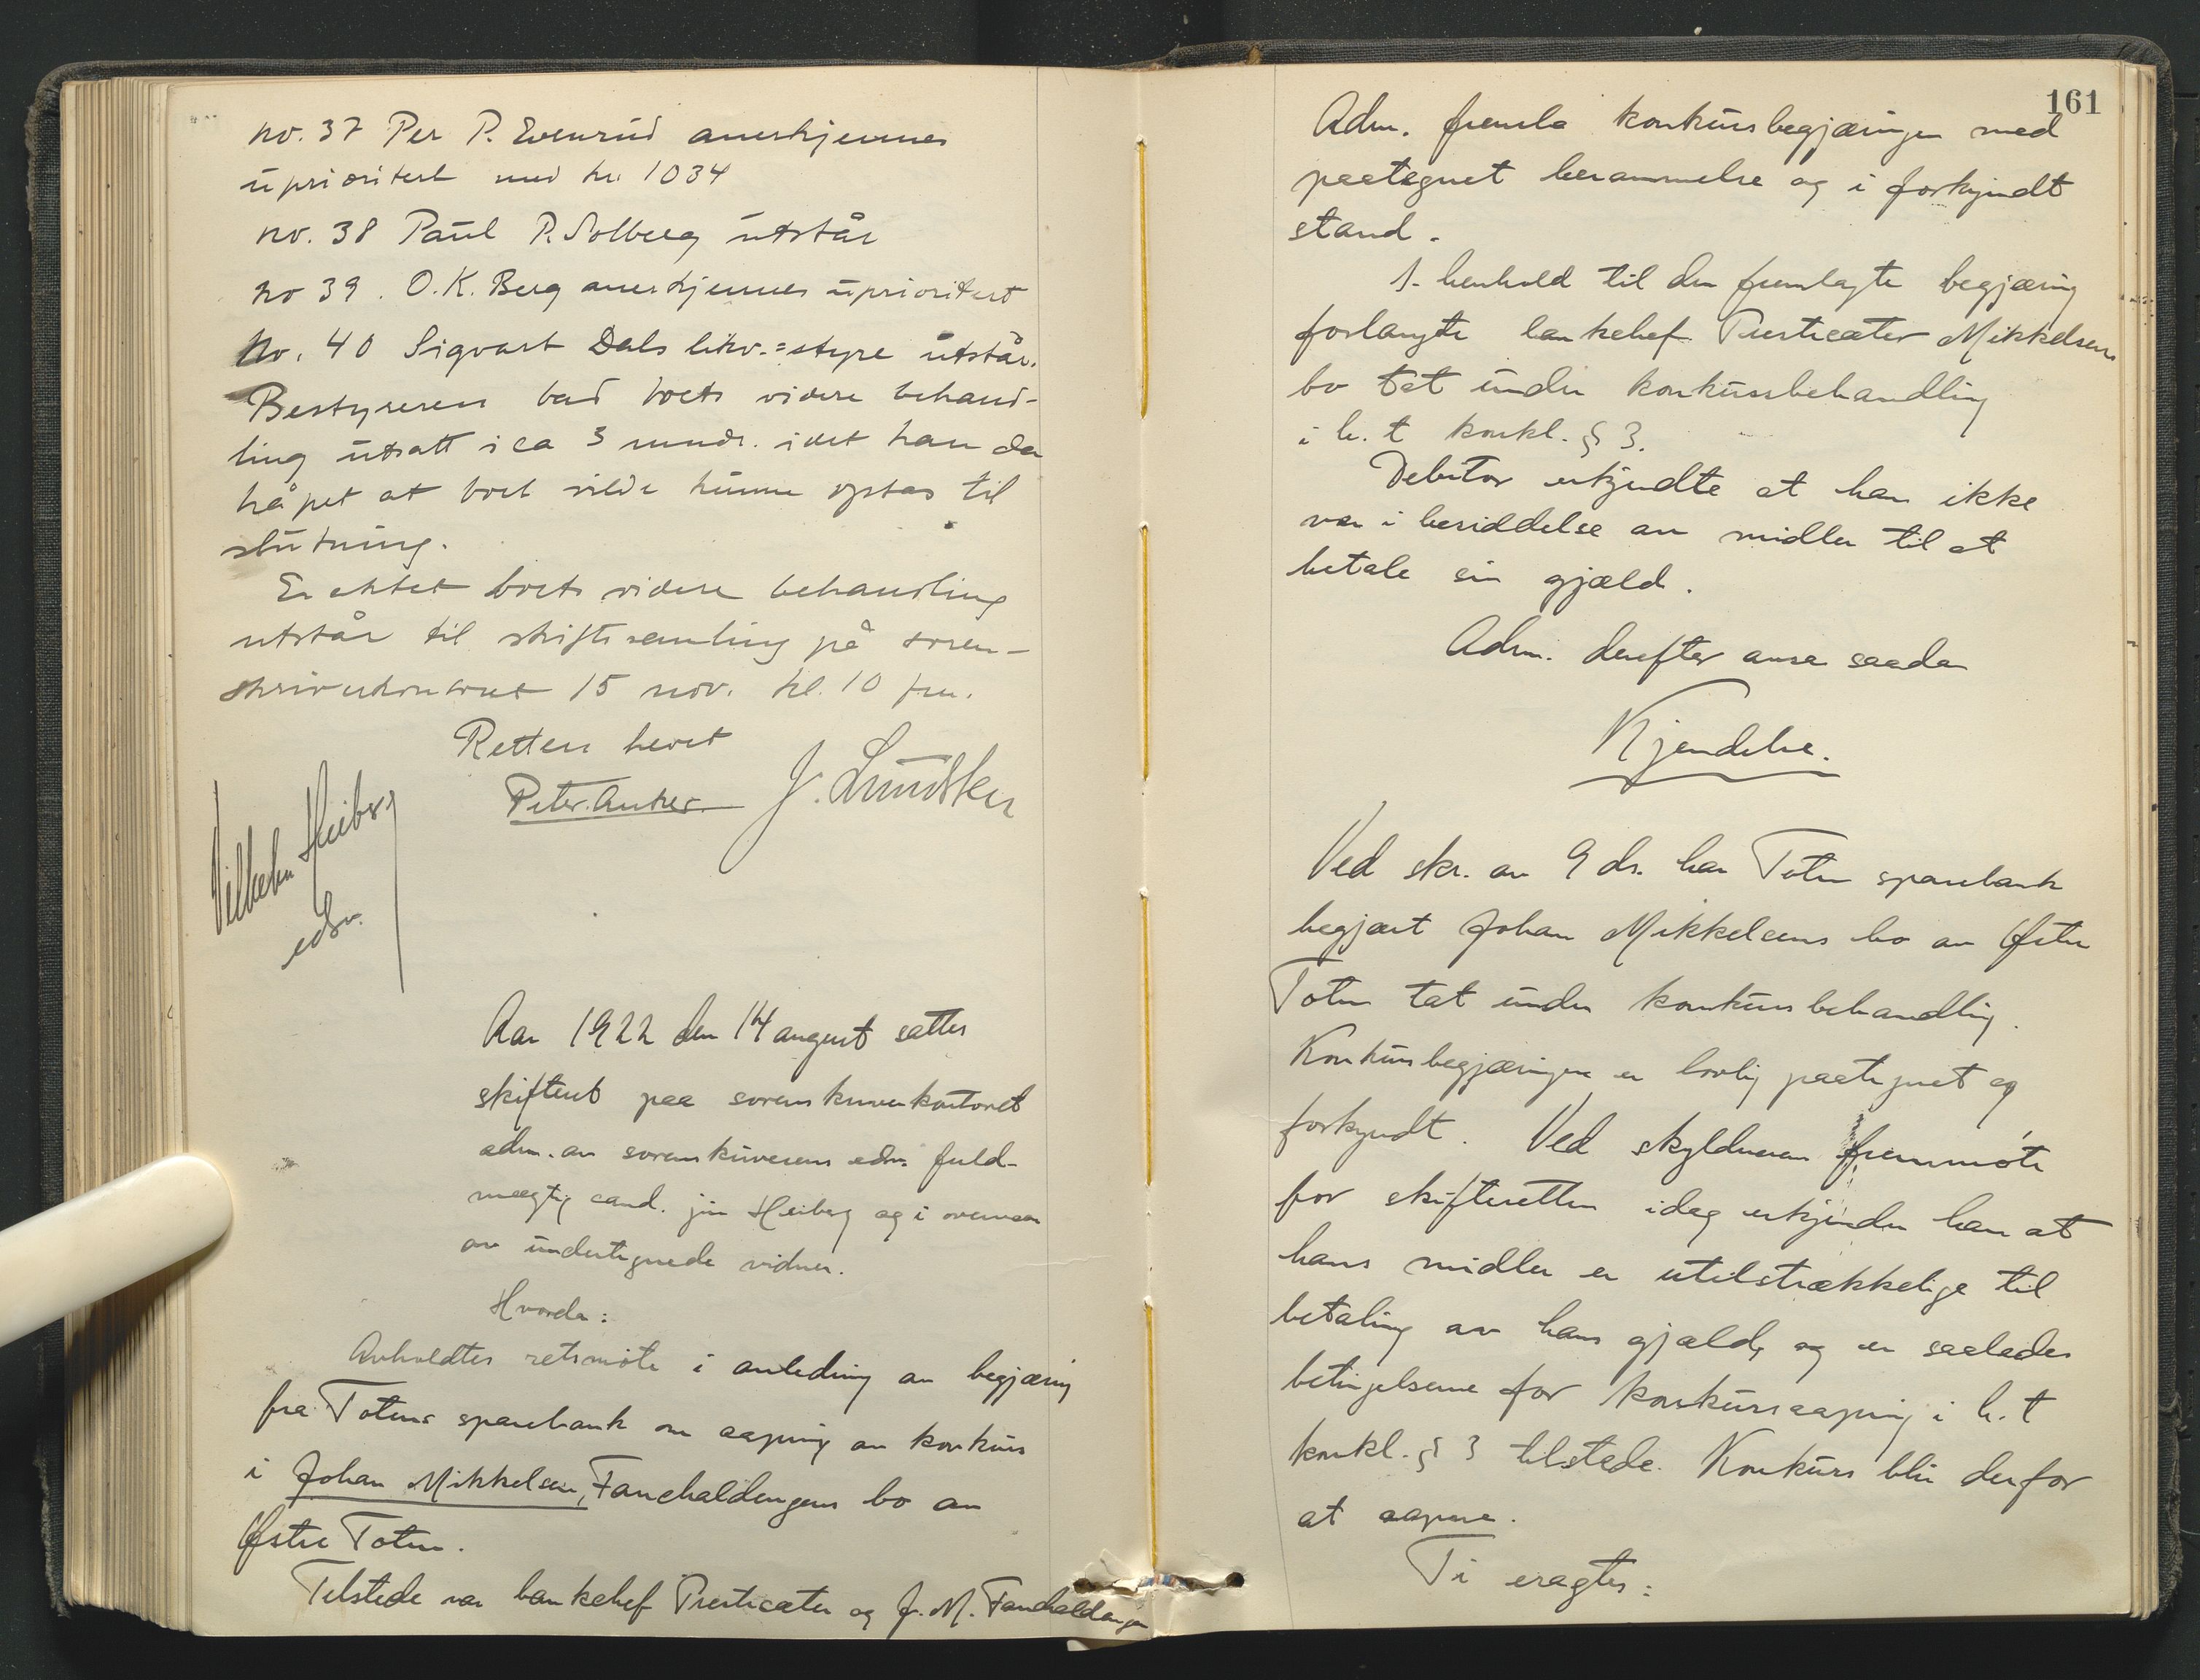 no. 37 Per P. Evenrud anerkjennes
uprioritert med kr. 1034
no. 38 Paul P. Solberg utstår
no 39. O. K. Berg anerkjennes uprioritert
No. 40 Sigvart Dals likv.=styre utstår.
Bestyreren bad boets videre behand-
ling utsatt i ca 3 mndr. idet han da
håpet at boet vilde kunne optas til
slutning.
Eraktet boets videre behandling
utstår til skiftesamling på soren-
skriverkontoret 15 nov. kl. 10 fm.
Retten hevet
Peter Anker J. Lundsten
Vilhelm Heiberg
edsv.
Aar 1922 den 14 august sattes
skifteret paa sorenskriverkontoret
adm. av sorenskriverens edsv. fuld-
mægtig cand. jur Heiberg og i overvær
av undertegnede vidner.
Hvorda:
Avholdtes retsmøte i anledning av begjæring
fra Totens sparebank om aapning av konkurs
i Johan Mikkelsen, Fanehaldengens bo av
Østre Toten.
Tilstede var bankchef Presticæter og J. M. Fanehaldengen
161
Adm. fremla konkursbegjæringen med
paategnet berammelse og i forkyndt
stand.
I henhold til den fremlagte begjæring
forlangte bankchef Presticæter Mikkelsens
bo tat under konkursbehandling
i h. t konkl. § 3.
Debitor erkjendte at han ikke
var i besiddelse av midler til at
betale sin gjæld.
Adm. derefter avsa saadan
Kjendelse.
Ved skr. av 9 ds. har Toten sparebank
begjært Johan Mikkelsens bo av Østre
Toten tat under konkursbehandling.
Konkursbegjæringen er lovlig paategnet og
forkyndt. Ved skyldneren fremmøte
for skifteretten idag erkjender han at
hans midler er utilstrækkelige til
betaling av hans gjæld, og er saaledes
betingelserne for konkursaapning i h. t
konkl. § 3 tilstede. Konkurs blir derfor
at aapne.
Ti eragtes: